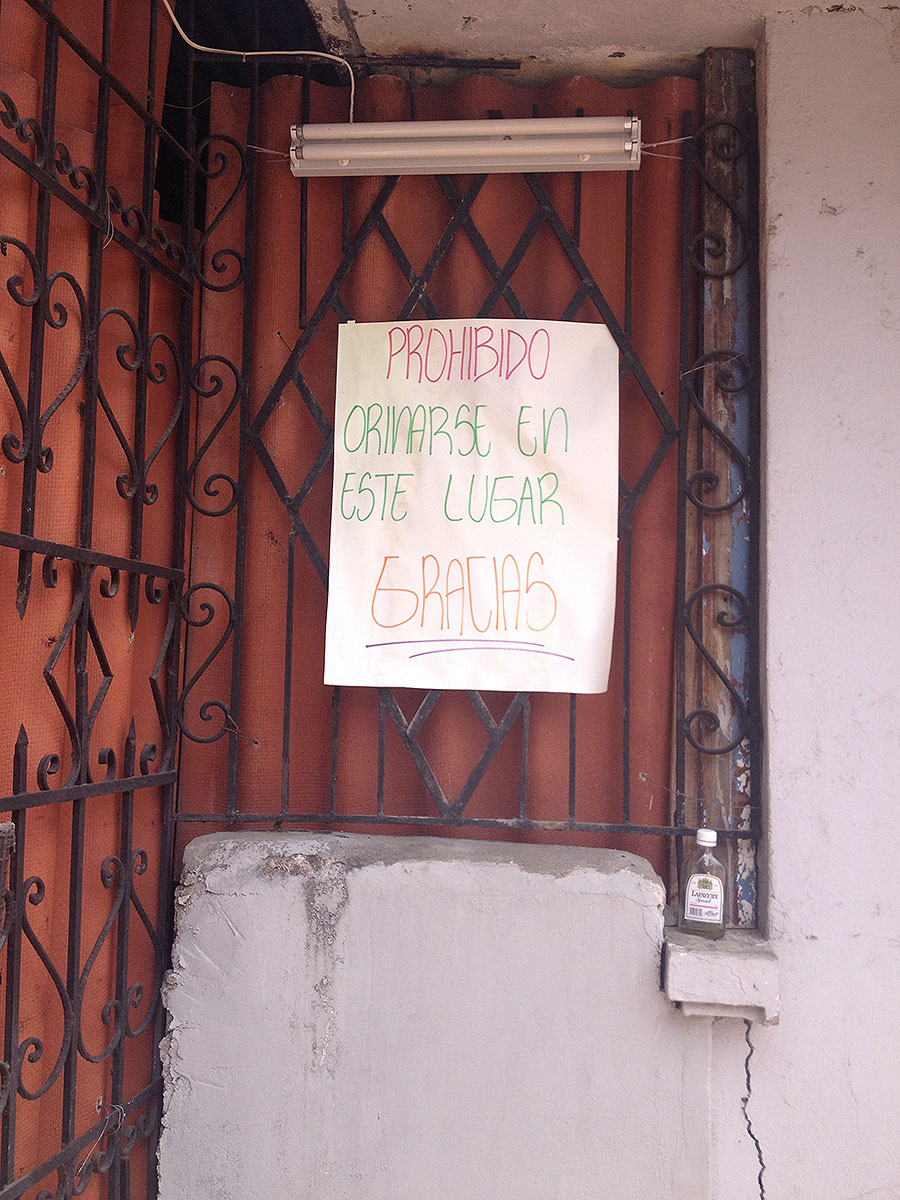 PROHIBIDO
ORINARSE EN
ESTE LUGAR
GRACIAS